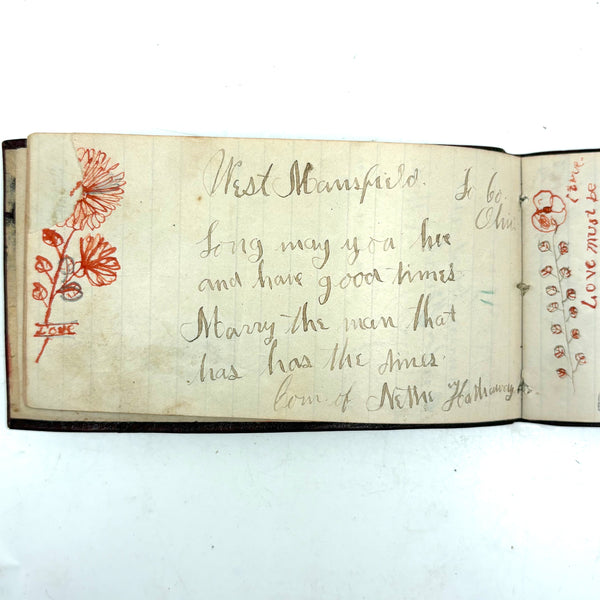 West Mansfield.
Lo Co.
Ohio
Long may you live
and have good times
Marry the man that
has has the dimes.
Com. of Nettie Hathaway
Love
Love must be